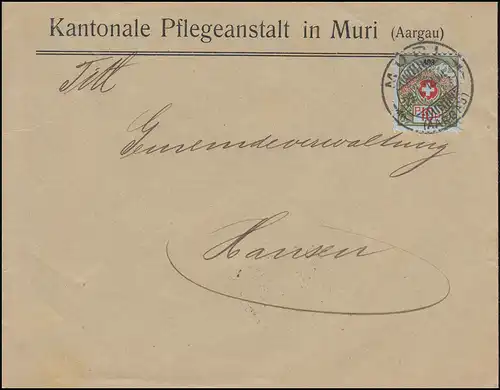 Kantonale Pflegeanstalt in Muri (Aargau)
Titl
Gemeindeverwaltung
Hausen
MURI